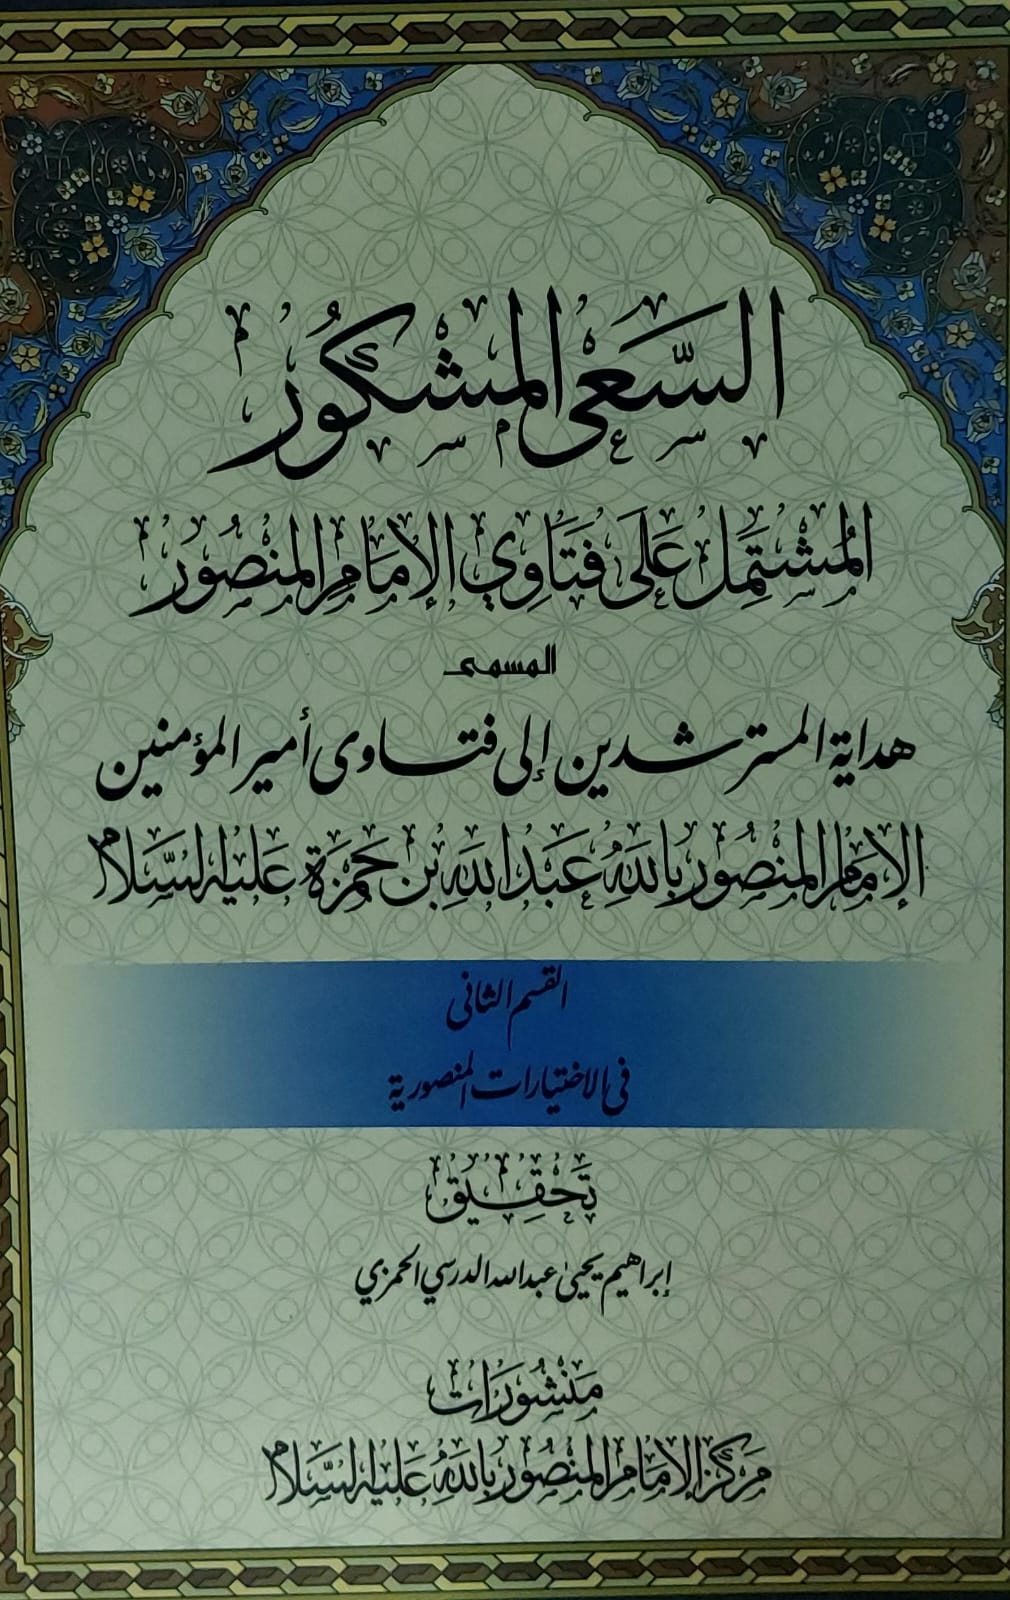 السعي المشكور
المشتمل على فتاوي الإمام المنصور
المسمى
هداية المسترشدين إلى فتاوى أمير المؤمنين
الإمام المنصور بالله عبدالله بن حمزة عليه السلام
القسم الثاني
في الاختيارات المنصورية
تحقيق
إبراهيم يحيى عبدالله الدرسي الحمزي
منشورات
مركز الإمام المنصور بالله عليه السلام